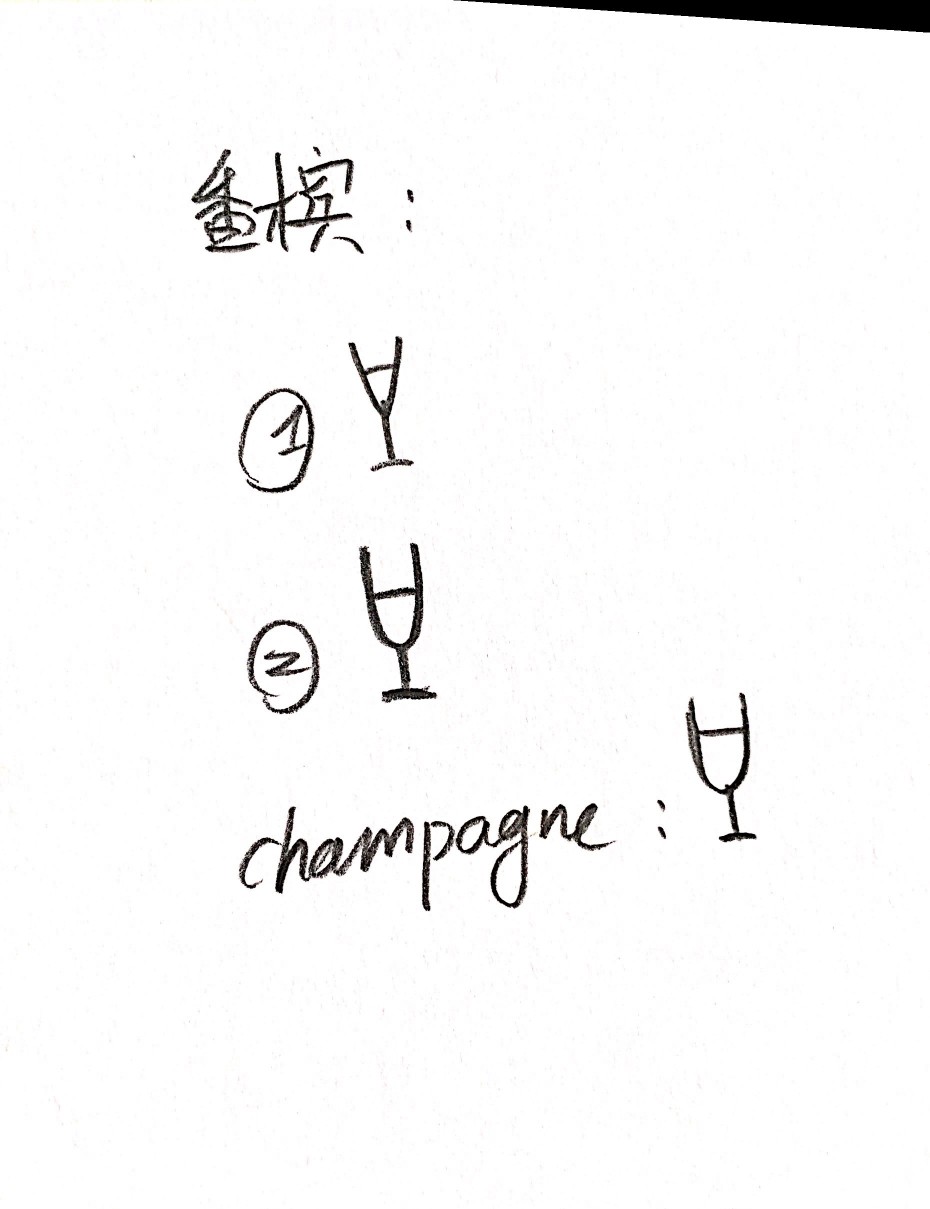 香槟：
①
②
champagne：